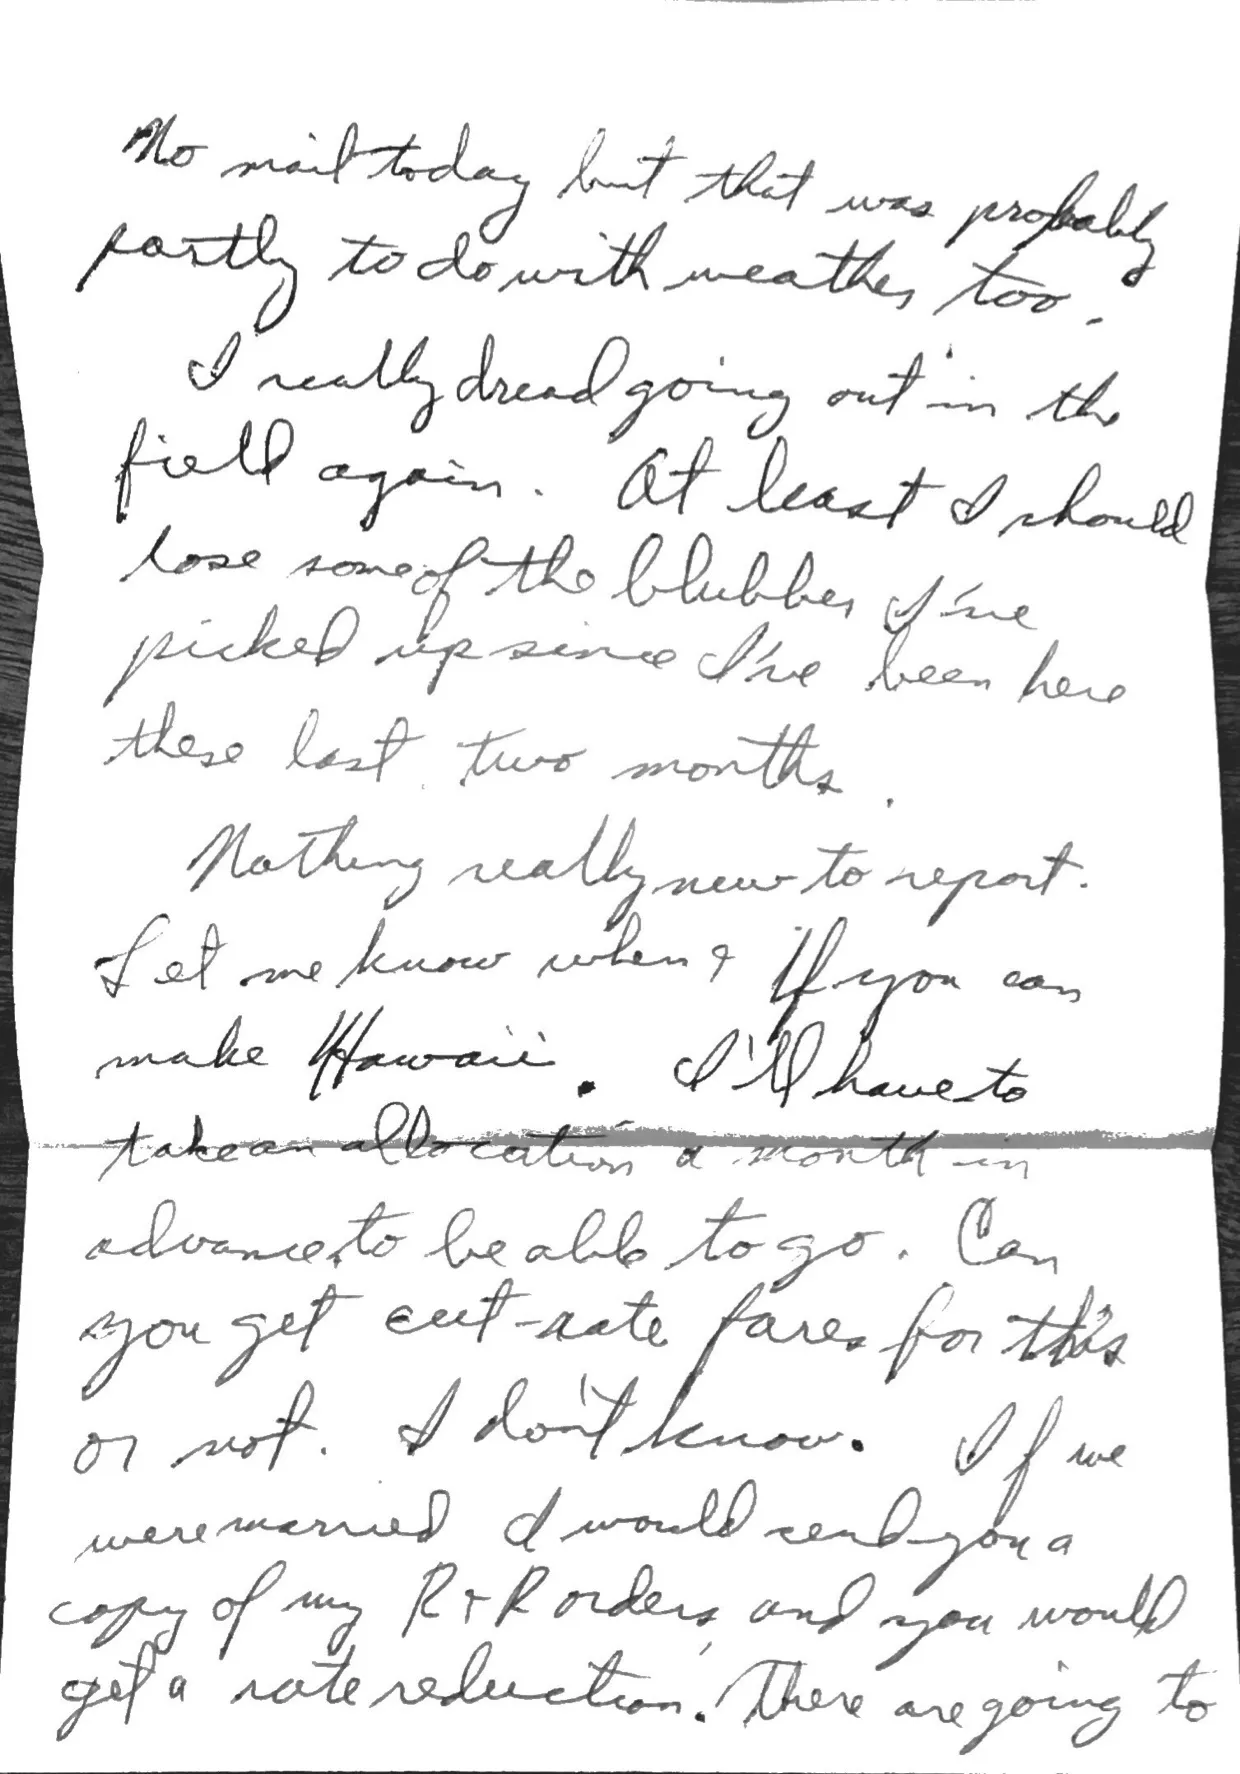 No mail today but that was probably
partly to do with weather too.
I really dread going out in the
field again. At least I should
lose some of the blubber I've
picked up since I've been here
these last two months.
Nothing really new to report.
Let me know when & If you can
make Hawaii. I'll have to
take an allocation a month in
advance to be able to go. Can
you get cut-rate fares for this
or not. I don't know. If we
were married I would send you a
copy of my R+R orders, and you would
get a rate reduction. There are going to